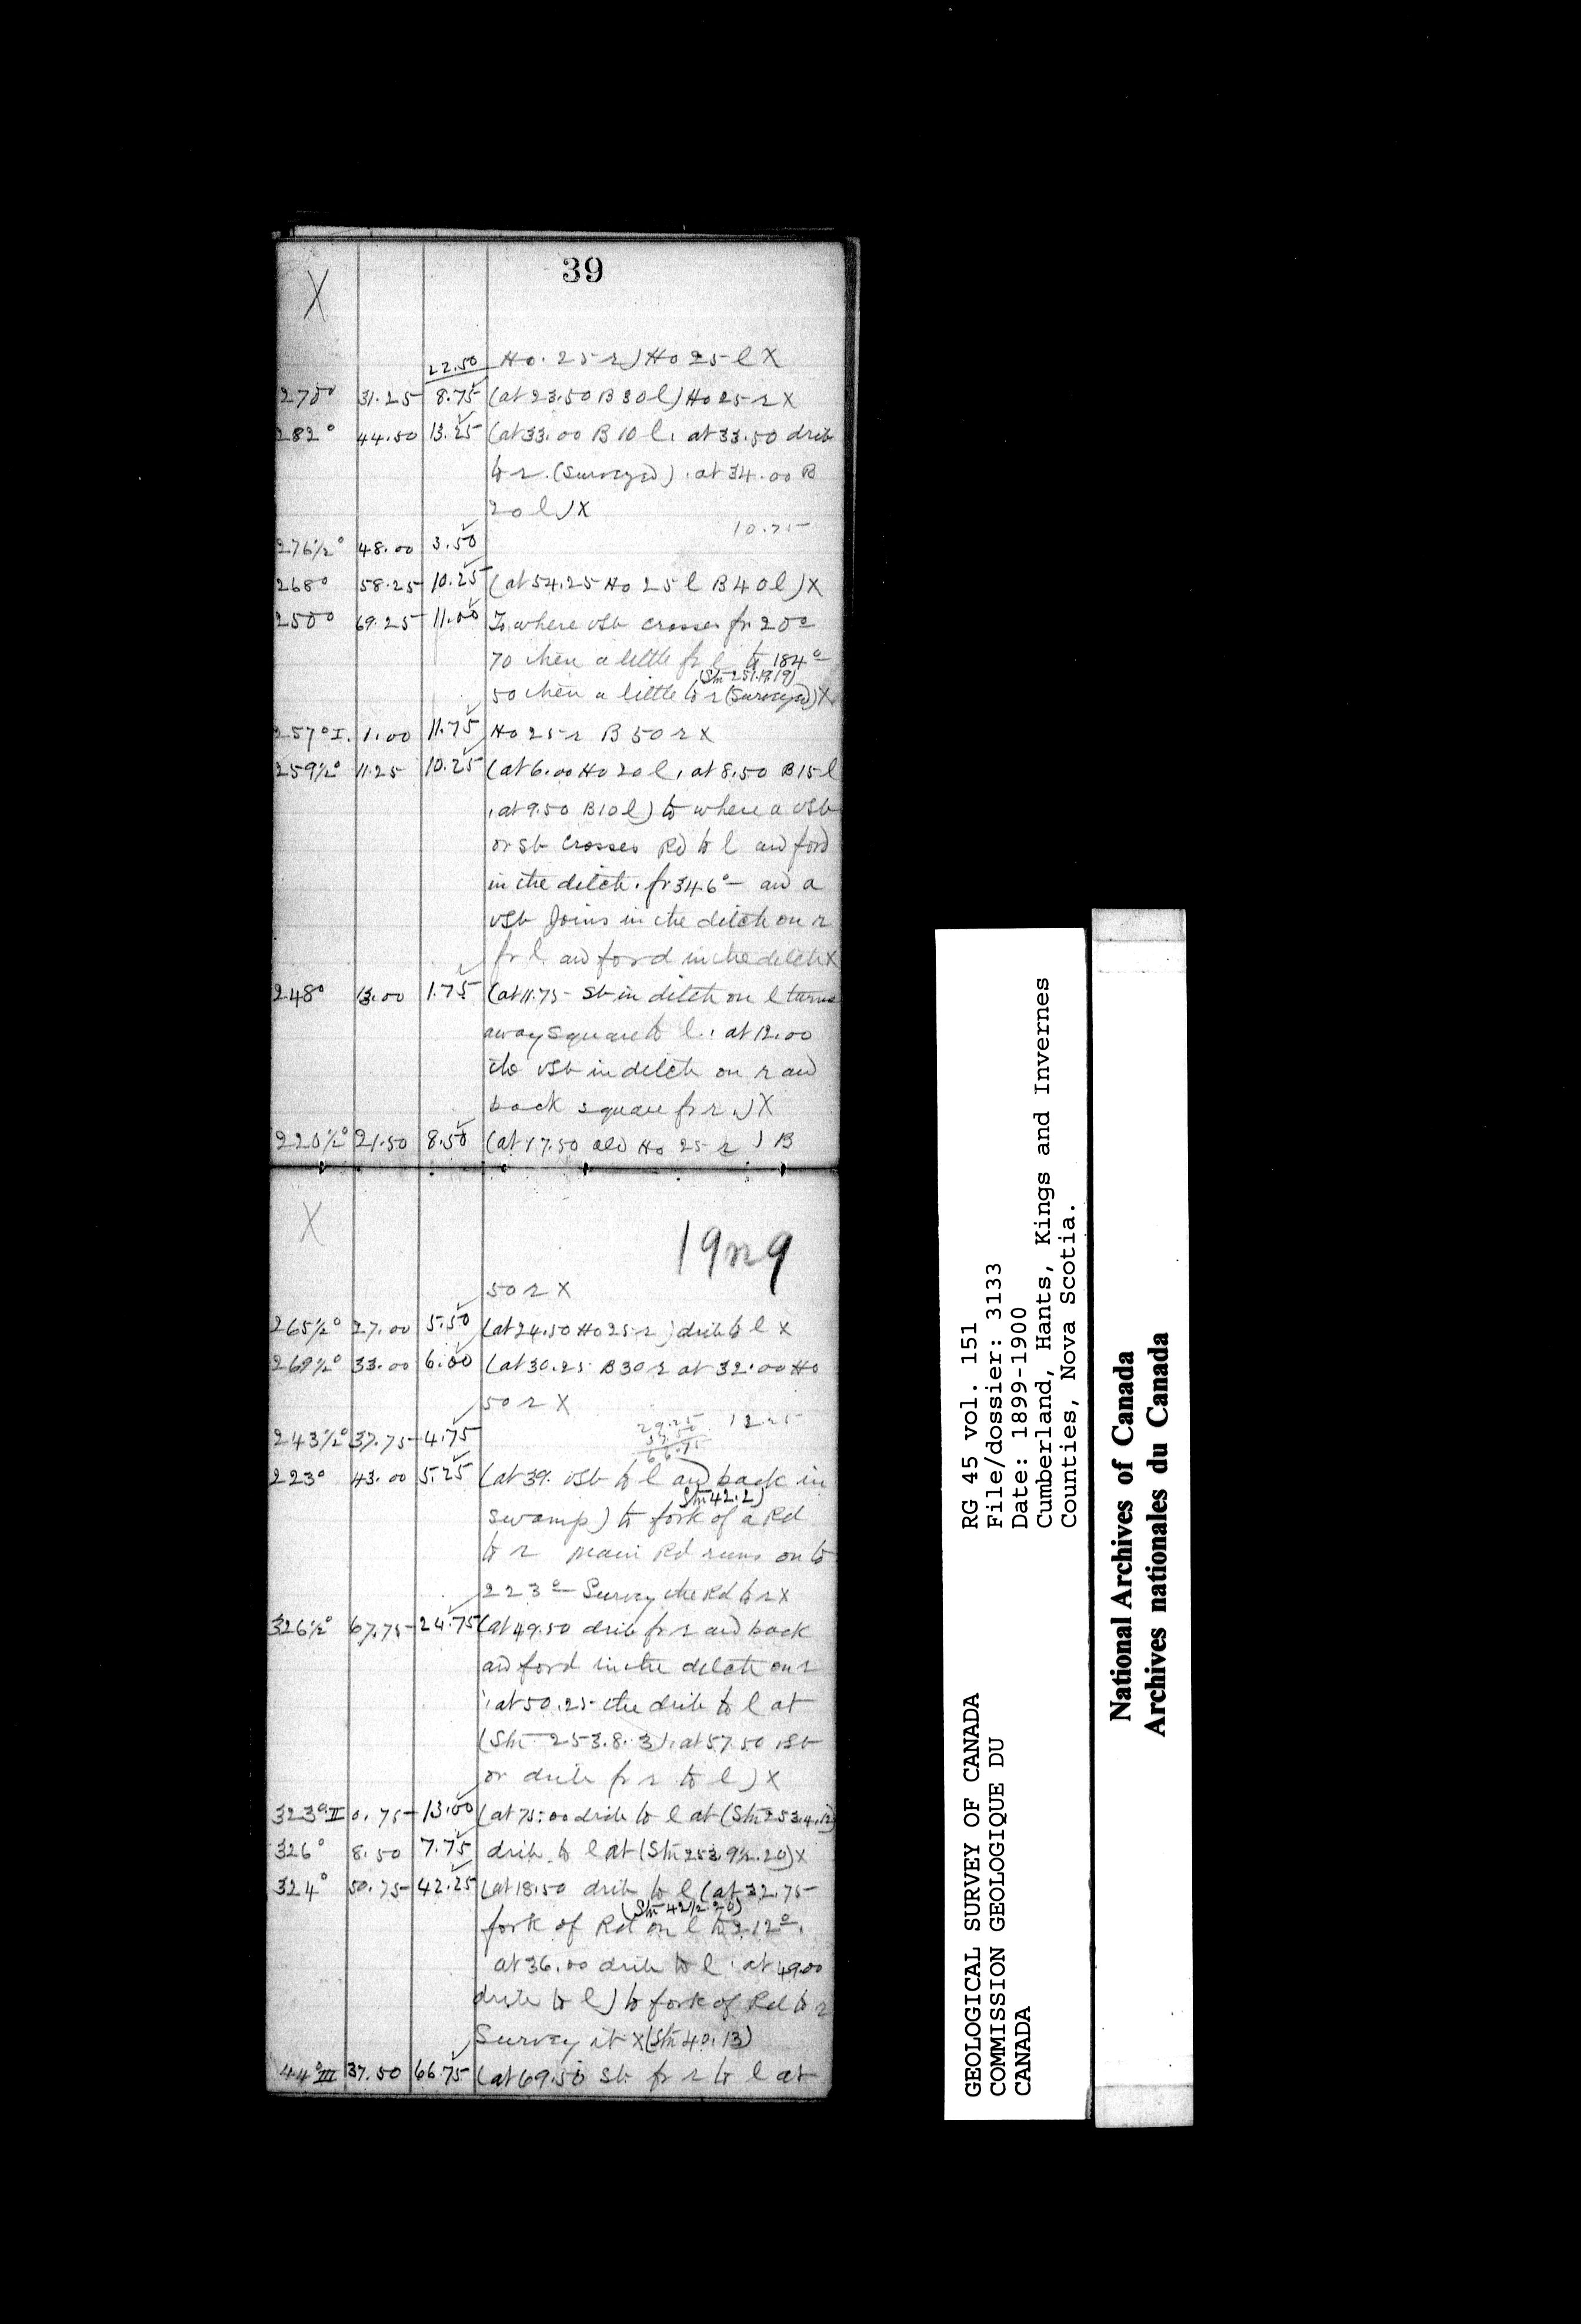 39
X
22.50 Ho. 25 r) Ho 25 l X
270° 31.25 8.75 (at 23.50 B 30 l) Ho 25 r X
282° 44.50 13.25 (at 33.00 B 10 l, at 33.50 drib
to r. (surveyed), at 34.00 B
20 l) X
10.75
276½° 48.00 3.50
268° 58.25 10.25 (at 54.25 Ho 25 l B 40 l) X
250° 69.25 11.00 To where vSb crosses fr 20°
70 then a little fr l to 184°
(Stn 251.19.19)
50 then a little to r (surveyed) X
257° I. 1.00 11.75 Ho 25 r B 50 r X
259½° 11.25 10.25 (at 6.00 Ho 20 l, at 8.50 B 15 l
, at 9.50 B 10 l) to where a vSb
or Sb crosses Rd to l and ford
in the ditch. fr 346° and a
vSb Joins in the ditch on r
fr l. and ford in the ditch X
248° 13.00 1.75 (at 11.75 Sb in ditch on l turns
away square to l., at 12.00
the vSb in ditch on r and
back square fr r.) X
220½° 21.50 8.50 (at 17.50 old Ho 25 r) B
X
19n9
50 r X
265½° 27.00 5.50 (at 24.50 Ho 25 r) drib to l X
269½° 33.00 6.00 (at 30.25 B 30 r at 32.00 Ho
50 r X
29.25 12.25
37.50
66.75
243½° 37.75 4.75
223° 43.00 5.25 (at 39. vSb to l and back in
Stn 42.2)
swamp) to fork of a Rd
to r Main Rd runs on to
223° Survey the Rd to r X
326½° 67.75 24.75 (at 49.50 drib fr r and back
and ford in the ditch on r
, at 50.25 the drib to l at
(Stn 253.8.3), at 57.50 vSb
or drib fr r to l) X
323° II 0.75 13.00 (at 75.00 drib to l at (Stn 253.4.12)
326° 8.50 7.75 drib to l at (Stn 253.9½.20) X
324° 50.75 42.25 (at 18.50 drib to l (at 32.75
(Stn 42½.20)
fork of Rd on l to 212°,
at 36.00 drib to l, at 49.00
drib to l) to fork of Rd to r
Survey it X (Stn 40.13)
44° III 37.50 66.75 (at 69.50 Sb fr r to l at
RG 45 vol. 151
File/dossier: 3133
Date: 1899-1900
Cumberland, Hants, Kings and Invernes
Counties, Nova Scotia.
GEOLOGICAL SURVEY OF CANADA
COMMISSION GEOLOGIQUE DU
CANADA
National Archives of Canada
Archives nationales du Canada